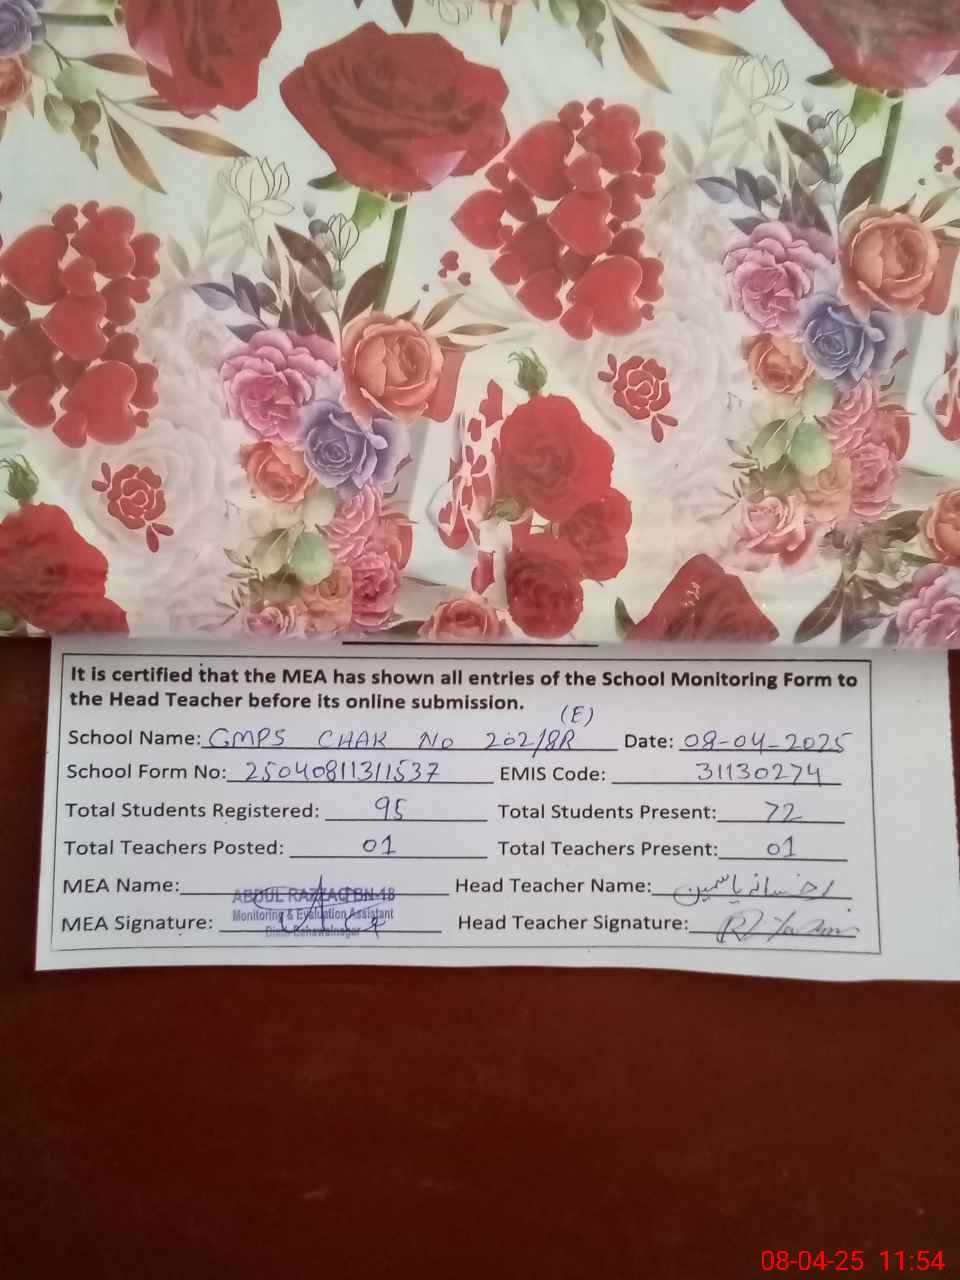 It is certified that the MEA has shown all entries of the School Monitoring Form to
the Head Teacher before its online submission.
(E)
School Name: GMPS CHAK No 202/8R Date: 08-04-2025
School Form No: 25040811311537 EMIS Code: 31130274
Total Students Registered: 95 Total Students Present: 72
Total Teachers Posted: 01 Total Teachers Present: 01
MEA Name: ABDUL RAZZAQ BN-18 Head Teacher Name: رخسانہ یاسمین
Monitoring & Evaluation Assistant
MEA Signature: Head Teacher Signature:
Bahawalnagar
08-04-25 11:54